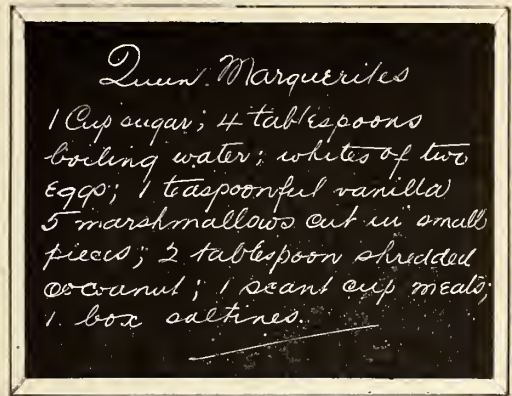 Queen Marguerites
1 Cup sugar; 4 tablespoons
boiling water; whites of two
eggs; 1 teaspoonful vanilla
5 marshmallows cut in small
pieces; 2 tablespoon shredded
cocoanut; 1 scant cup meats;
1. box saltines.